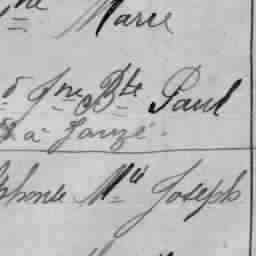 ne Marie
d Jne Bte Paul
à Janzé
phonse Mie Joseph